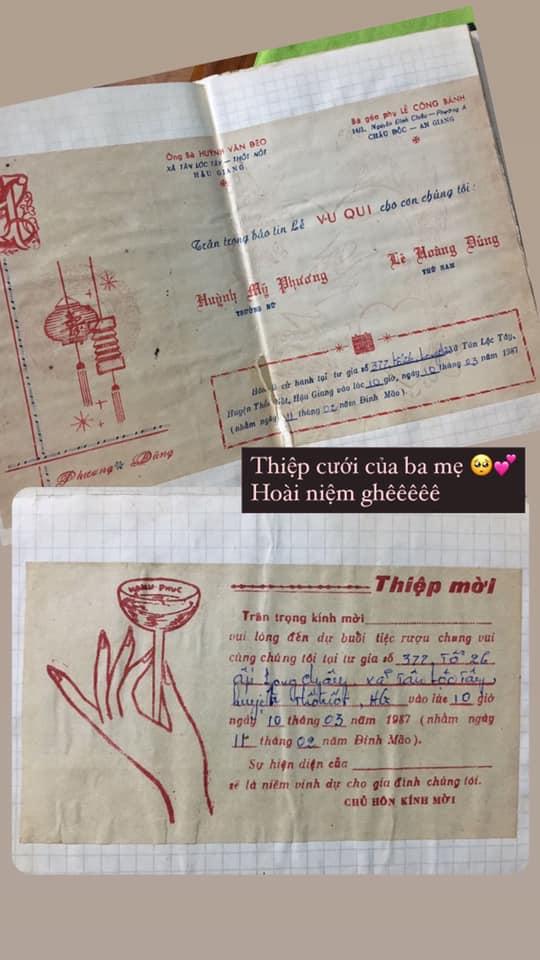 Ông Bà HUỲNH VĂN ĐEO
XÃ TÂN LỘC TÂY — THỐT NỐT
HẬU GIANG
Bà góa phụ LÊ CÔNG BÁNH
Nguyễn Đình Chiểu — Phường A
CHÂU ĐỐC — AN GIANG
Trân trọng báo tin Lễ VU QUI cho con chúng tôi :
Huỳnh Mỹ Phương
TRƯỞNG NỮ
Lê Hoàng Dũng
THỨ NAM
Hôn lễ cử hành tại tư gia số 377, xã Tân Lộc Tây,
Huyện Thốt Nốt, Hậu Giang vào lúc 10 giờ, ngày 10 tháng 03 năm 1987
(nhằm ngày 11 tháng 02 năm Đinh Mão).
Phương Dũng
Thiệp cưới của ba mẹ 🥺💕
Hoài niệm ghêêêêê
HẠNH PHÚC
Thiệp mời
Trân trọng kính mời
vui lòng đến dự buổi tiệc rượu chung vui
cùng chúng tôi tại tư gia số 377, Tổ 26
ấp Long, xã Tân Lộc Tây
huyện Thốt Nốt, HG vào lúc 10 giờ
ngày 10 tháng 03 năm 1987 (nhằm ngày
11 tháng 02 năm Đinh Mão).
Sự hiện diện của
sẽ là niềm vinh dự cho gia đình chúng tôi.
CHỦ HÔN KÍNH MỜI